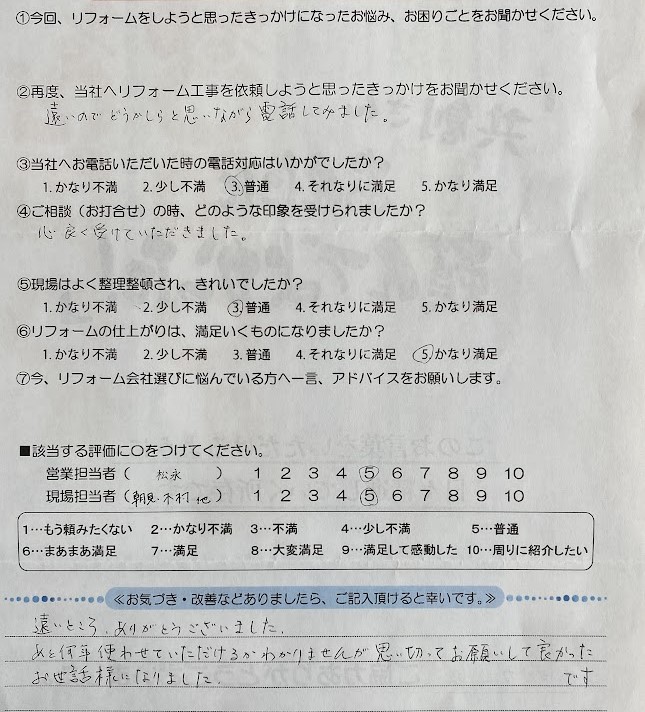 ①今回、リフォームをしようと思ったきっかけになったお悩み、お困りごとをお聞かせください。
②再度、当社へリフォーム工事を依頼しようと思ったきっかけをお聞かせください。
遠いのでどうかしらと思いながら電話してみました。
③当社へお電話いただいた時の電話対応はいかがでしたか?
1.かなり不満 2.少し不満 3.普通 4.それなりに満足 5.かなり満足
④ご相談（お打合せ）の時、どのような印象を受けられましたか?
心良く受けていただきました。
⑤現場はよく整理整頓され、きれいでしたか?
1.かなり不満 2.少し不満 3.普通 4.それなりに満足 5.かなり満足
⑥リフォームの仕上がりは、満足いくものになりましたか?
1.かなり不満 2.少し不満 3.普通 4.それなりに満足 5.かなり満足
⑦今、リフォーム会社選びに悩んでいる方へ一言、アドバイスをお願いします。
■該当する評価に○をつけてください。
営業担当者（ 松永 ） 1 2 3 4 5 6 7 8 9 10
現場担当者（朝見・木村 他） 1 2 3 4 5 6 7 8 9 10
1…もう頼みたくない 2…かなり不満 3…不満 4…少し不満 5…普通
6…まあまあ満足 7…満足 8…大変満足 9…満足して感動した 10…周りに紹介したい
≪お気づき・改善などありましたら、ご記入頂けると幸いです。≫
遠いところ、ありがとうございました。
あと何年使わせていただけるかわかりませんが思い切ってお願いして良かった
です
お世話様になりました。